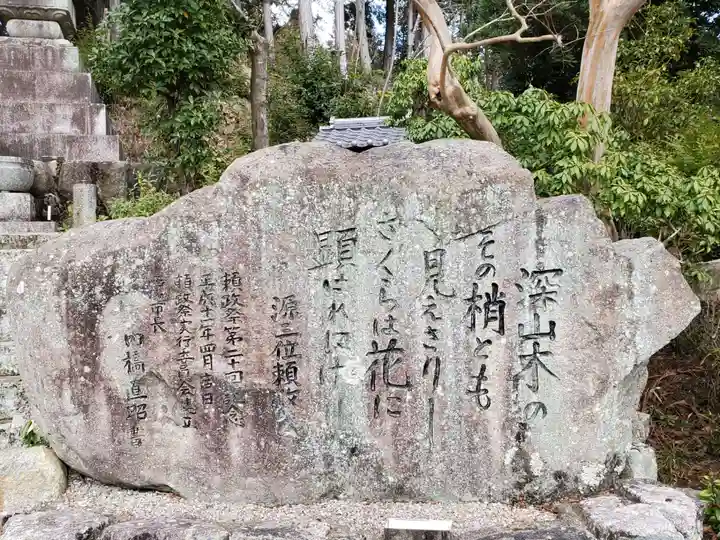 深山木の
その梢とも
見えざりし
さくらは花に
顕はれにけり
源三位頼政
頼政祭第二十回記念
平成十一年四月吉日
頼政祭実行委員会建立
市長
内橋直昭書